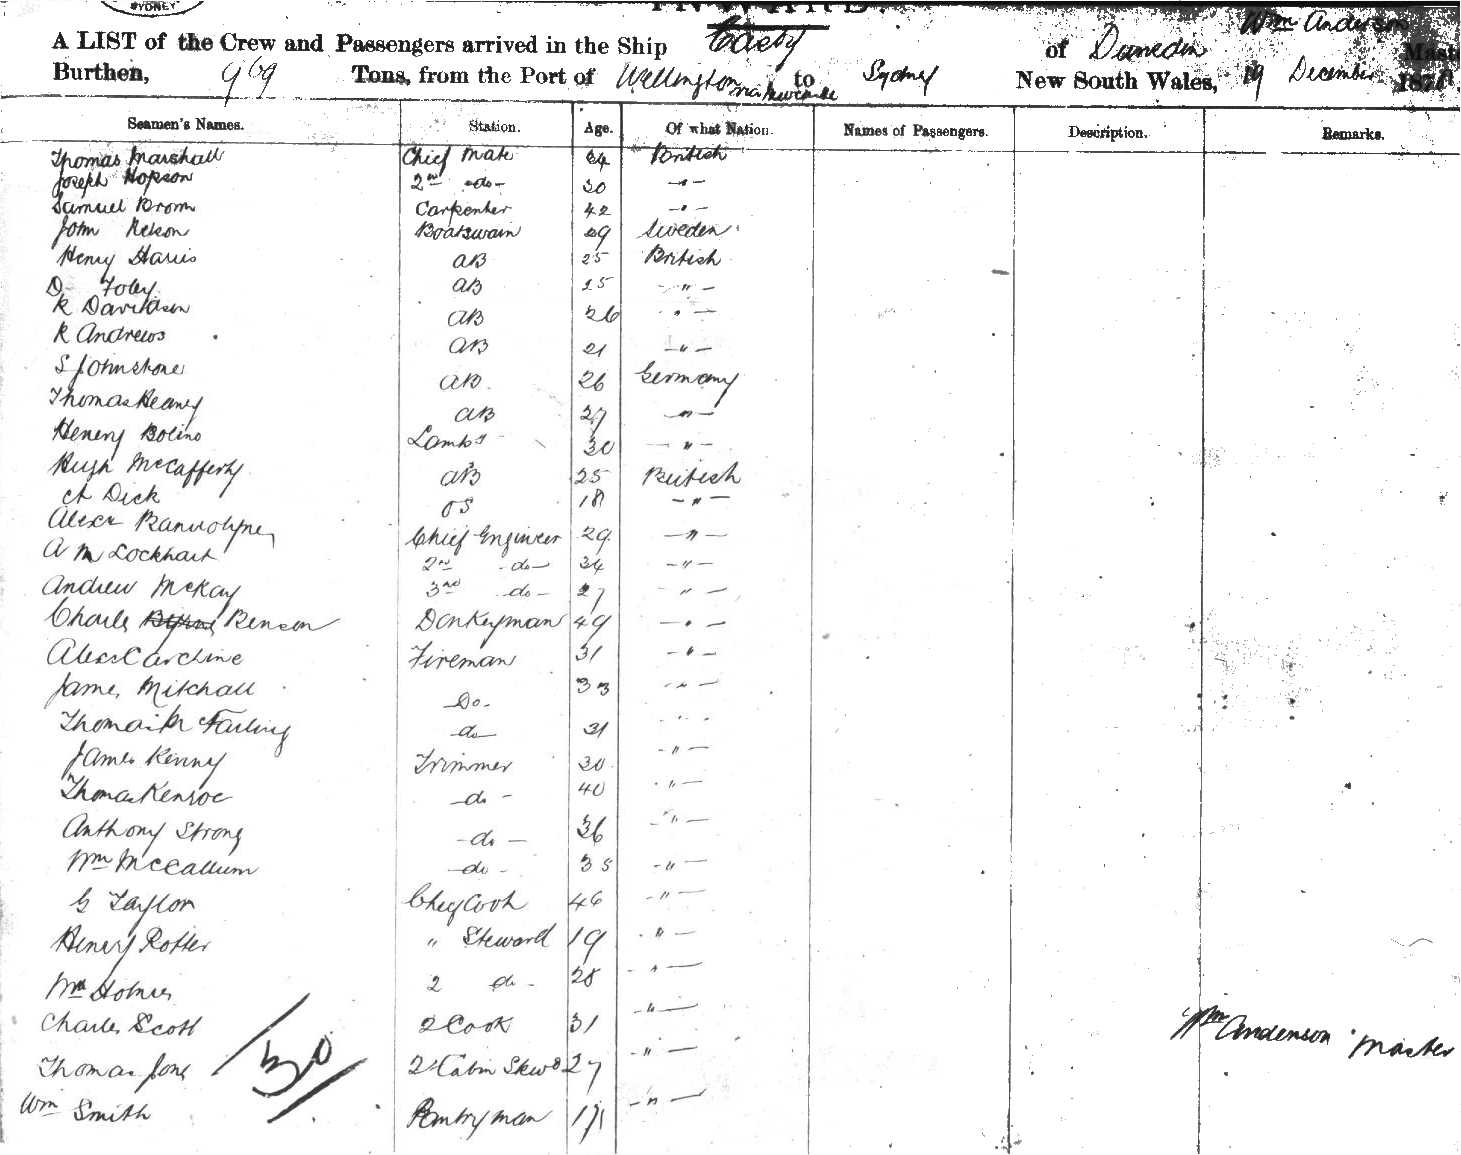 SYDNEY
INWARD.
A LIST of the Crew and Passengers arrived in the Ship Easby of Dunedin Wm Anderson Master
Burthen, 969 Tons, from the Port of Wellington via Newcastle to Sydney New South Wales, 19 December 187
Seamen's Names. Station. Age. Of what Nation. Names of Passengers. Description. Remarks.
Thomas Marshall Chief Mate 34 British
Joseph Hopson 2nd -do- 30 -"-
Samuel Brown Carpenter 42 -"-
John Nelson Boatswain 29 Sweden
Henry Harris AB 25 British
D Foley AB 25 -"-
R Davidson AB 26 -"-
R Andrews AB 21 -"-
S Johnstone AB 26 Germany
Thomas Heaney AB 27 -"-
Henery Bolino Lamps 30 -"-
Hugh McCafferty AB 25 British
A Dick OS 18 -"-
Alexr Chief Engineer 29 -"-
A M Lockhart 2nd -do- 34 -"-
Andrew McKay 3rd do- 27 -"-
Charles Byrne Benson Donkeyman 49 -"-
Alex Fireman 31 -"-
James Mitchall -Do- 33 -"-
Thomas Mc Farling -do- 31 " -
James Kenny Trimmer 30 -"-
Thomas -do- 40 "-
Anthony Strong -do- 36 -"-
Wm McCallum -do- 35 -"-
G Taylor Chef Cook 46 -"-
Henery Rotter " Steward 19 -"-
Wm Holmes 2 do- 28 -"-
Charles Scott 2 Cook 31 -"-
Wm Anderson Master
Thomas Jone 2 Cabin Stewd 27 -"-
30
Wm Smith Pantryman 17 -"-